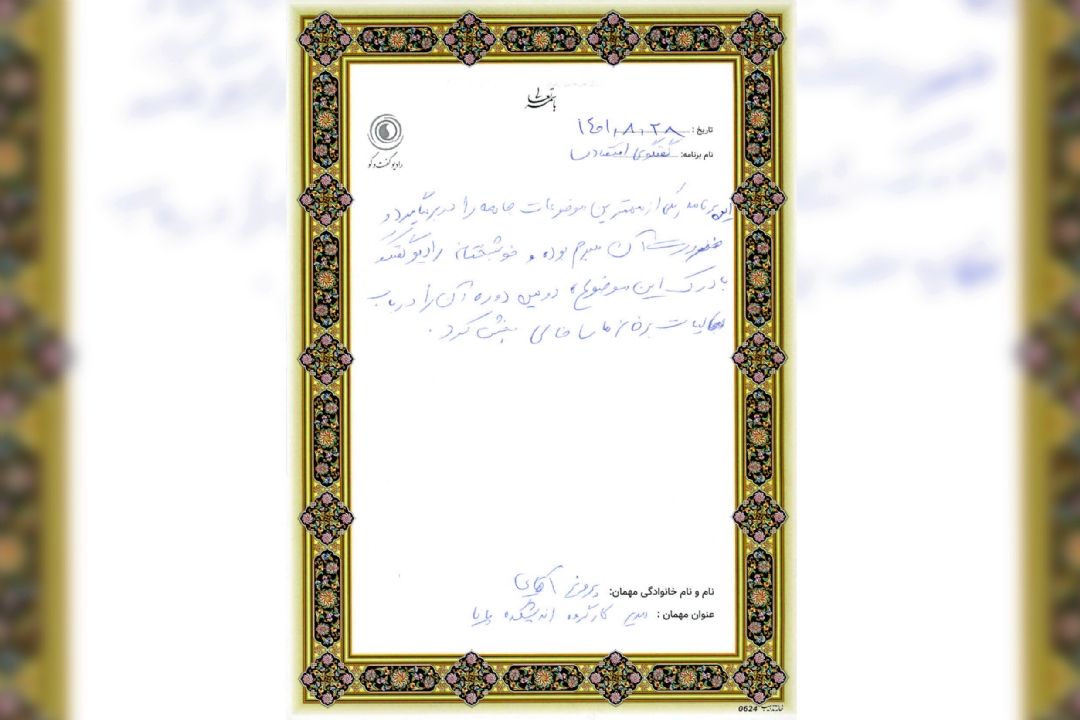 باسمه تعالی
تاریخ : ۱۴۰۱،۸،۲۸
نام برنامه: گفتگوی اقتصادی
رادیو گفت و گو
این برنامه یکی از مهمترین موضوعات جامعه را در بر میگیرد و
ضرورت آن مبرم بوده و خوشبختانه رادیو گفتگو
با درک این موضوع، دومین دوره آن را در باب
مالیات بر خانه‌ها
پخش کرد.
نام و نام خانوادگی مهمان: پیروز
عنوان مهمان : مدیر کارگروه اندیشکده پایا
0624